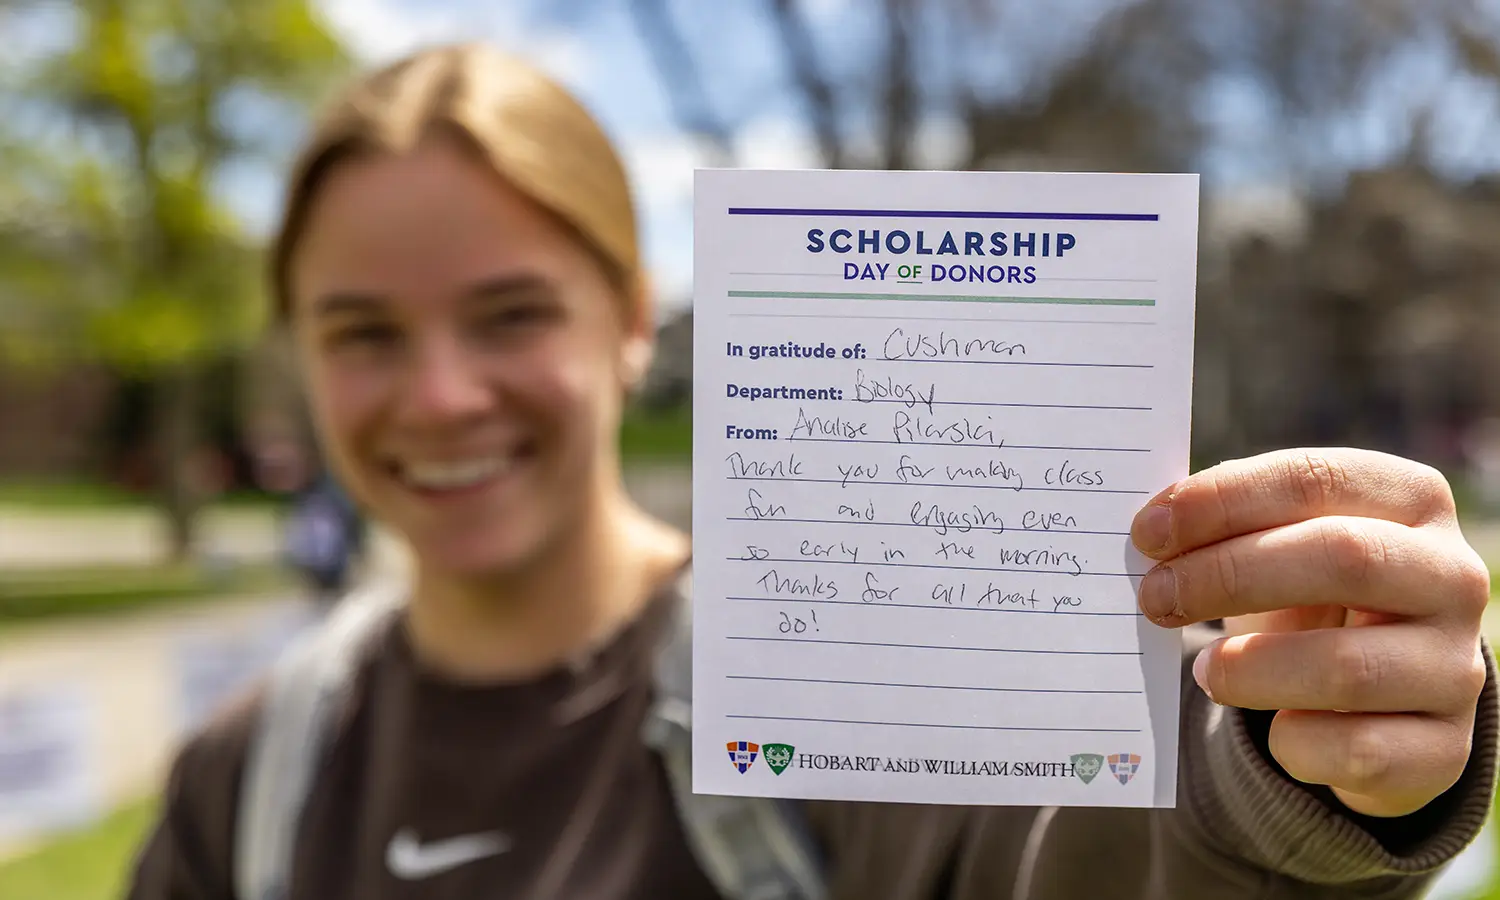 SCHOLARSHIP
DAY OF DONORS
In gratitude of: Cushman
Department: Biology
From: Analise Pilarski,
Thank you for making class
fun and engaging even
so early in the morning.
Thanks for all that you
do!
HOBART AND WILLIAM SMITH